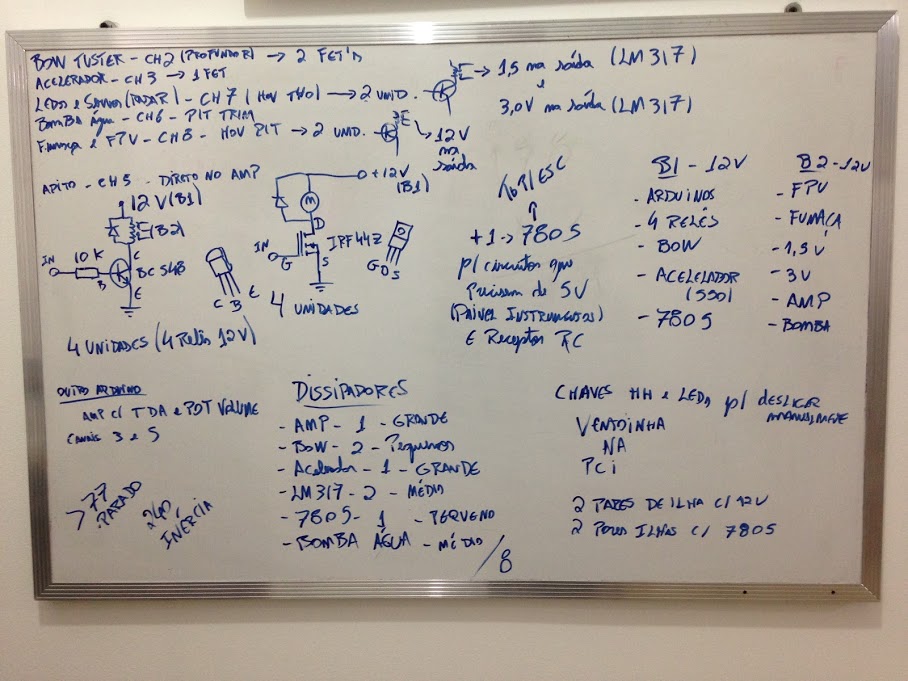 BOW TUSTER - CH2 (PROFUNDOR) → 2 FET's
ACELERADOR - CH3 → 1 FET
LEDs e Servos (RADAR) - CH7 (HOV THO) → 2 UNID.
BOMBA Água - CH6 - PIT TRIM
Fumaça e FPV - CH8 - HOV PIT → 2 UND.
→ 1,5 na saída (LM317)
e
3,0V na saída (LM317)
12V
na
saída
APITO - CH5 - DIRETO NO AMP
12V (B1)
(B2)
IN
10K
B
C
BC548
E
C B E
4 UNIDADES (4 Relês 12V)
+12V
(B1)
M
D
IN
G
S
IRF44Z
G D S
4 UNIDADES
P/ESC
↑
+1 → 7805
p/ circuitos que
Precisem de 5V
(PAINEL INSTRUMENTOS)
E Receptor RC
B1 - 12V
- ARDUINOS
- 4 RELÊS
- BOW
- ACELELADOR
(550)
- 7805
B2 - 12V
- FPV
- FUMAÇA
- 1,5V
- 3V
- AMP
- BOMBA
OUTRO ARDUINO
AMP C/ TDA e POT VOLUME
canais 3 e 5
> 77
PARADO
240
INÉRCIA
DISSIPADORES
- AMP - 1 - GRANDE
- BOW - 2 - Pequenos
- Acelerador - 1 - GRANDE
- LM317 - 2 - MÉDIO
- 7805 - 1 - PEQUENO
- BOMBA ÁGUA - MÉDIO
/8
CHAVES HH e LEDs p/ DESLIGAR
MANUALMENTE
VENTOINHA
NA
PCI
2 PARES DE ILHA C/ 12V
2 PARES ILHAS C/ 7805